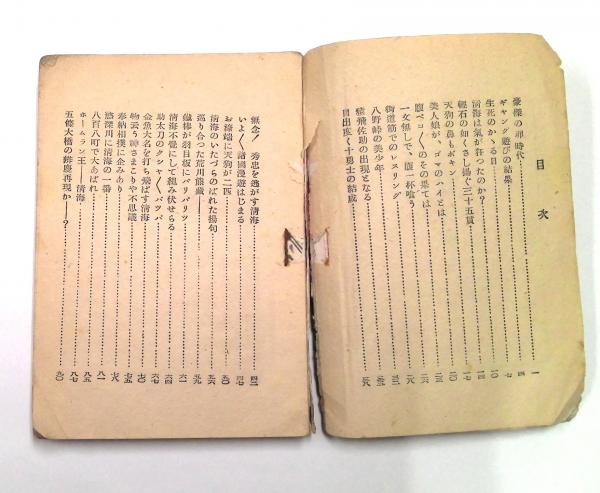 目次
豪傑の卵時代………一
ギャング遊びの結果………四
生死のかゝる日………七
清海は氣が咎つたのか？………一〇
輕石の如くさし揚ぐ三十五貫………一四
天狗の鼻もポキン………一七
美人娘が、ゴマのハイとは………二〇
腹ペコ／＼のその果ては………二三
一文無しで、腹一杯喰う………二六
街道筋でのレスリング………二八
八野峠の美少年………三二
猿飛佐助の出現となる………三五
目出度く十勇士の結成………三八
無念！秀忠を逃がす清海………四二
いよ／＼諸國漫遊はじまる………四七
お濠端に天狗が二匹………五〇
清海のいたづらのばれた揚句………五四
巡り合つた荒川熊藏――………五九
鐵棒が羽目板にバリバリツ………六一
清海不覺にして組み伏せらる………六四
助太刀のクシヤ／＼バツバ………六七
金魚大名を打ち飛ばす清海………七〇
物云う神さまこりや不思議………七四
奉納相撲に企みあり………七八
怒深川に清海の一番………八一
八百八町で大あばれ………八五
ホームラン王――清海………八七
五條大橋の辨慶再現か――？………九〇